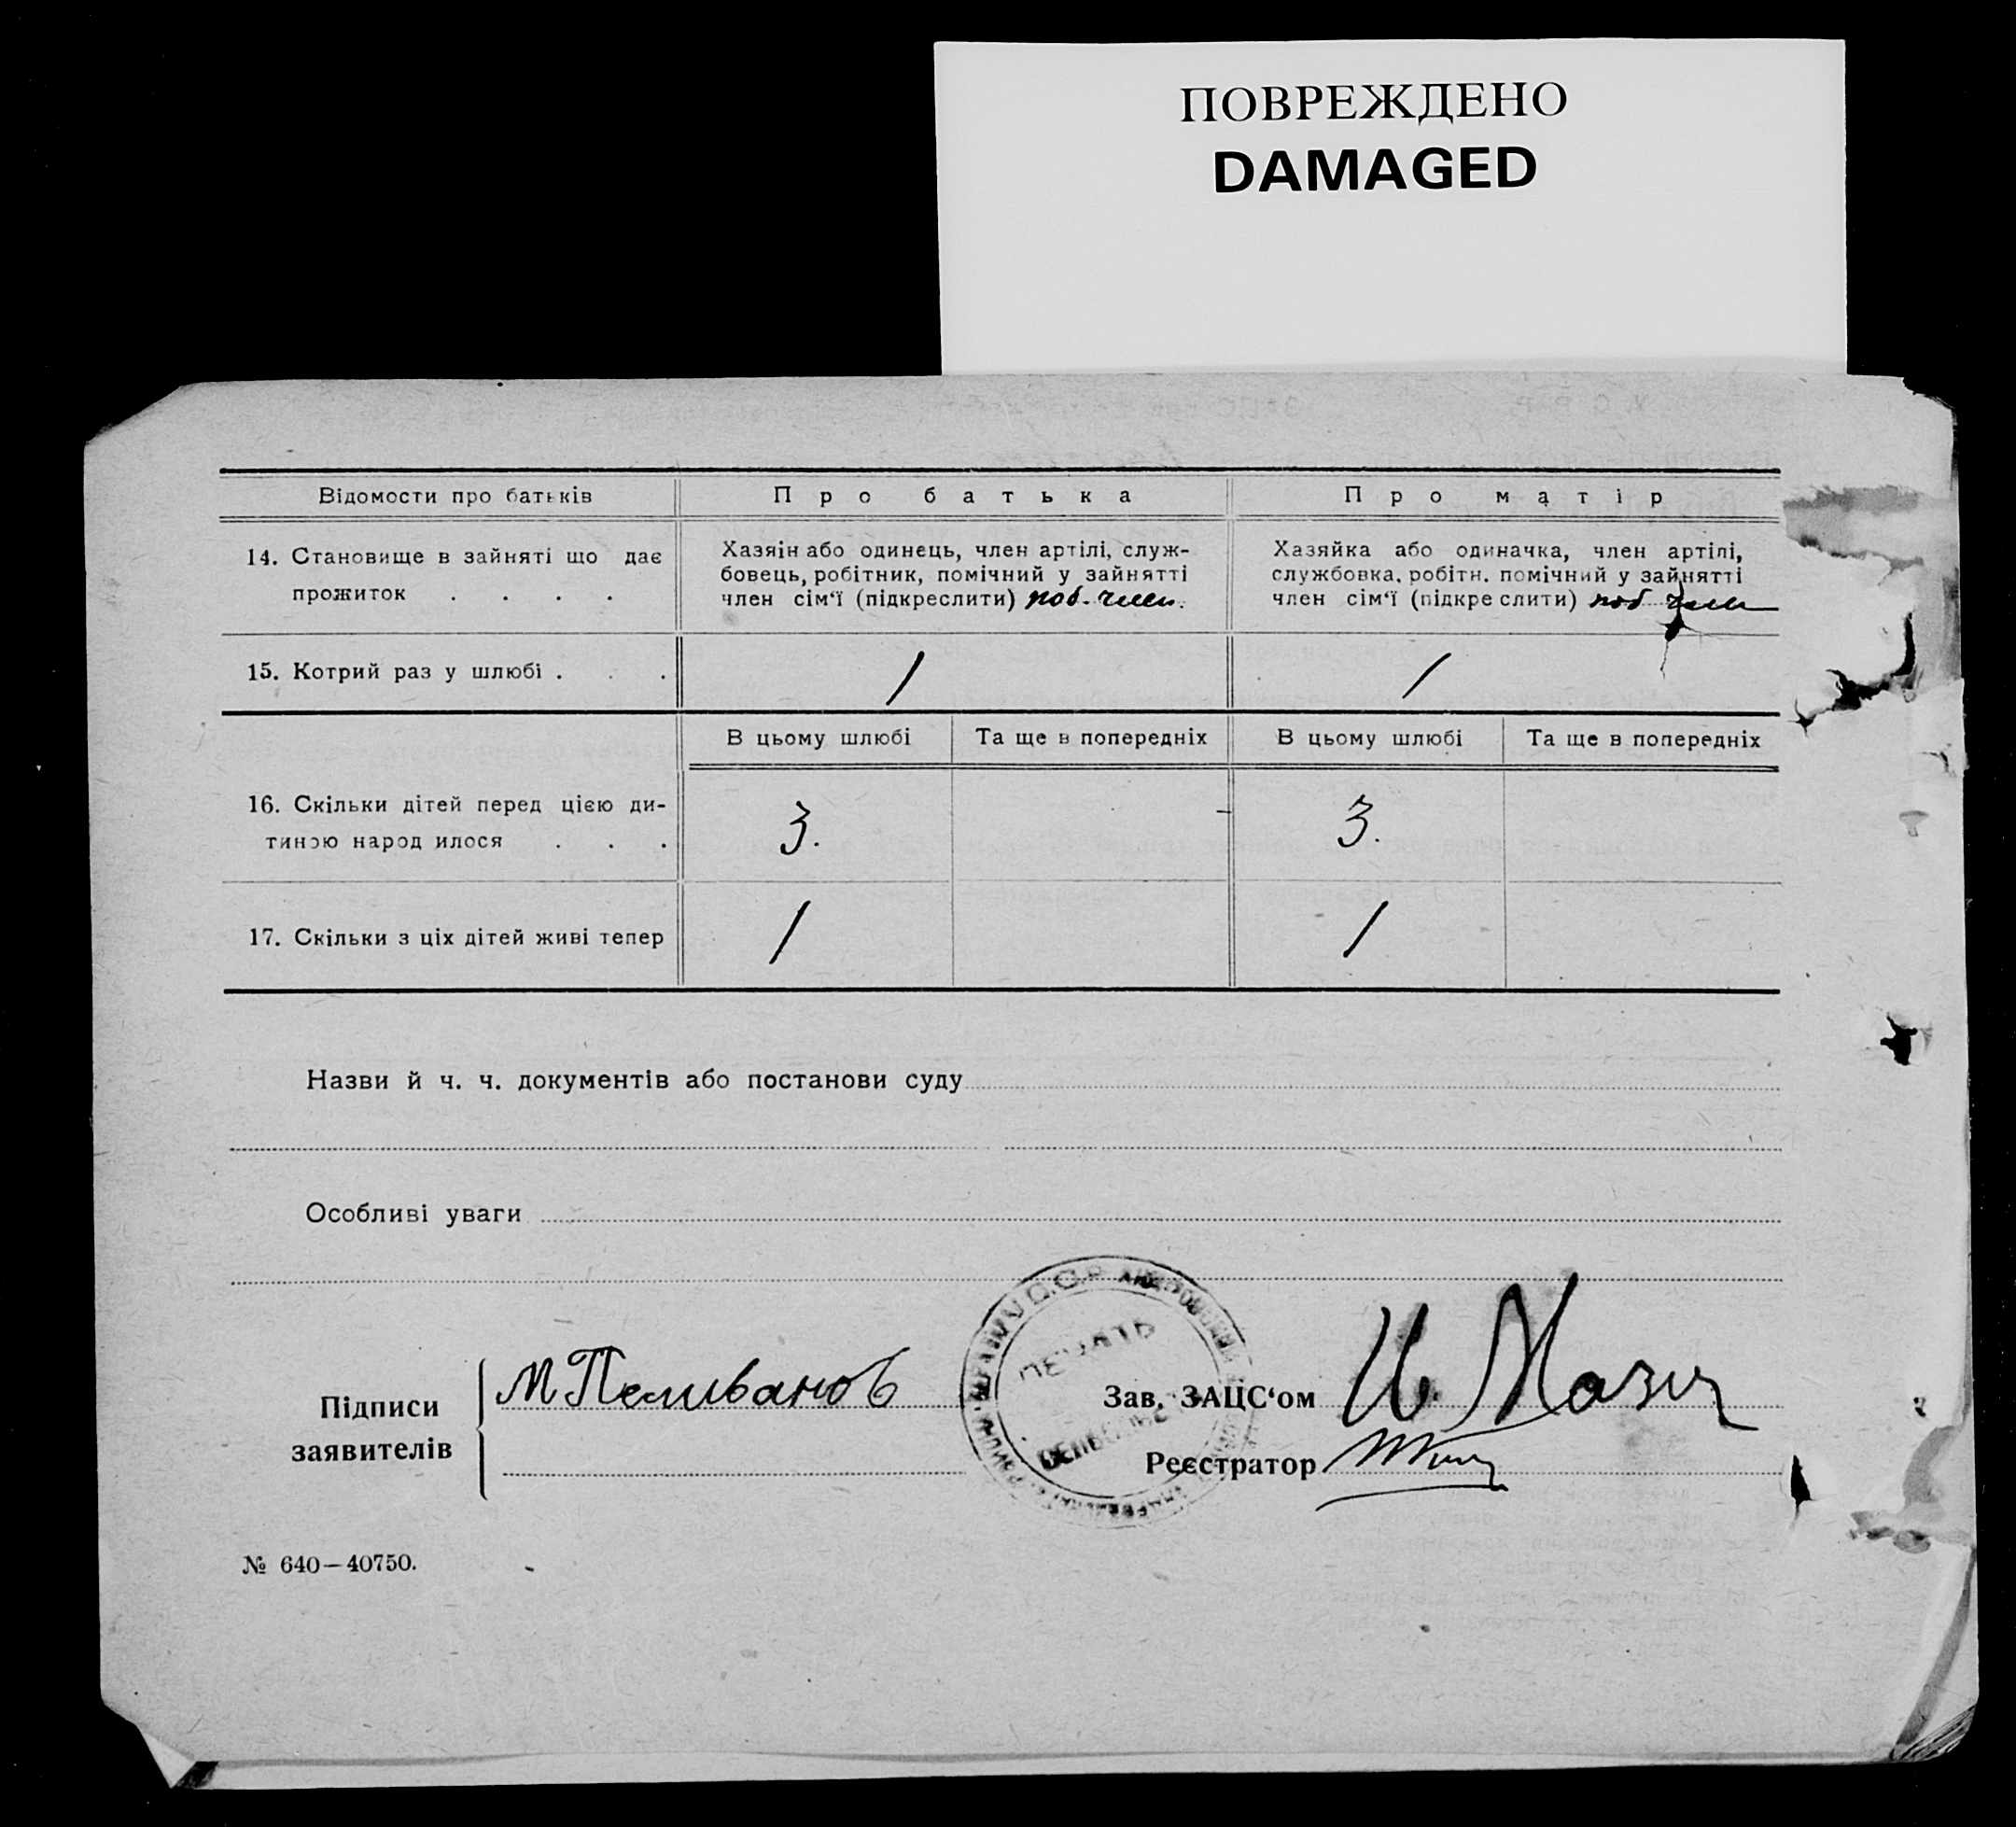 ПОВРЕЖДЕНО
DAMAGED
Відомости про батьків
Про батька
Про матір
14. Становище в зайняті що дає
прожиток . . . .
Хазяїн або одинець, член артілі, служ-
бовець, робітник, помічний у зайнятті
член сім‘ї (підкреслити)
Хазяйка або одиначка, член артілі,
службовка, робітн. помічний у зайнятті
член сім‘ї (підкреслити)
15. Котрий раз у шлюбі . . .
1
1
В цьому шлюбі
Та ще в попередніх
В цьому шлюбі
Та ще в попередніх
16. Скільки дітей перед цією ди-
тиною народилося . . .
3.
3.
17. Скільки з ціх дітей живі тепер
1
1
Назви й ч. ч. документів або постанови суду
Особливі уваги
Підписи
заявителів
М Пеливанов
Зав. ЗАЦС‘ом
Реєстратор
ПЕЧАТЬ
№ 640—40750.